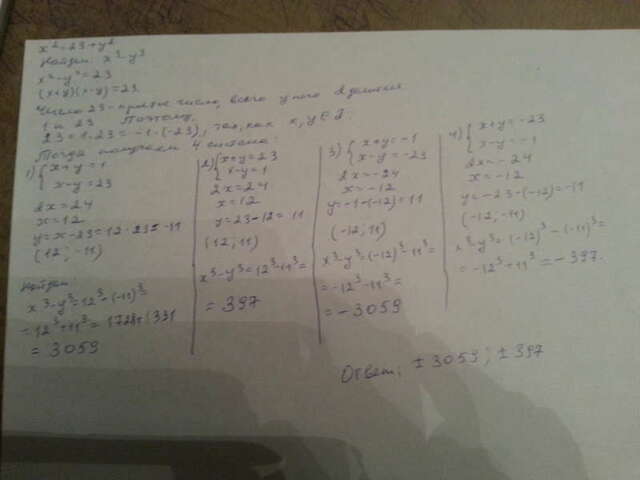 x² = 23 + y²
Найти: x³ - y³
x² - y² = 23
(x+y)(x-y) = 23
Число 23 - простое число, всего у него 2 делителя
1 и 23 Поэтому,
23 = 1·23 = -1·(-23), так, как x, y ∈ Z.
Тогда получаем 4 системы:
1) { x+y = 1
x-y = 23
2x = 24
x = 12
y = x-23 = 12-23 = -11
(12; -11)
Найдем:
x³-y³ = 12³-(-11)³ =
= 12³+11³ = 1728+1331
= 3059
2) { x+y = 23
x-y = 1
2x = 24
x = 12
y = 23-12 = 11
(12; 11)
x³-y³ = 12³-11³ =
= 397
3) { x+y = -1
x-y = -23
2x = -24
x = -12
y = -1-(-12) = 11
(-12; 11)
x³-y³ = (-12)³-11³ =
= -12³-11³ =
= -3059
4) { x+y = -23
x-y = -1
2x = -24
x = -12
y = -23-(-12) = -11
(-12; -11)
x³-y³ = (-12)³-(-11)³ =
= -12³+11³ = -397.
Ответ: ± 3059; ± 397